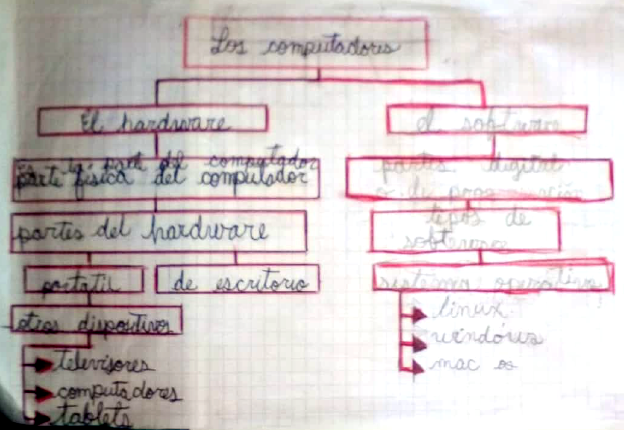 Los computadores
El hardware
el software
Es la parte del computador
parte física del computador
partes digital
o de programación
partes del hardware
tipos de
sobterware
portatil
de escritorio
sistema operativo
otros dispositivos
televisores
computadores
tablets
linux
windows
mac os